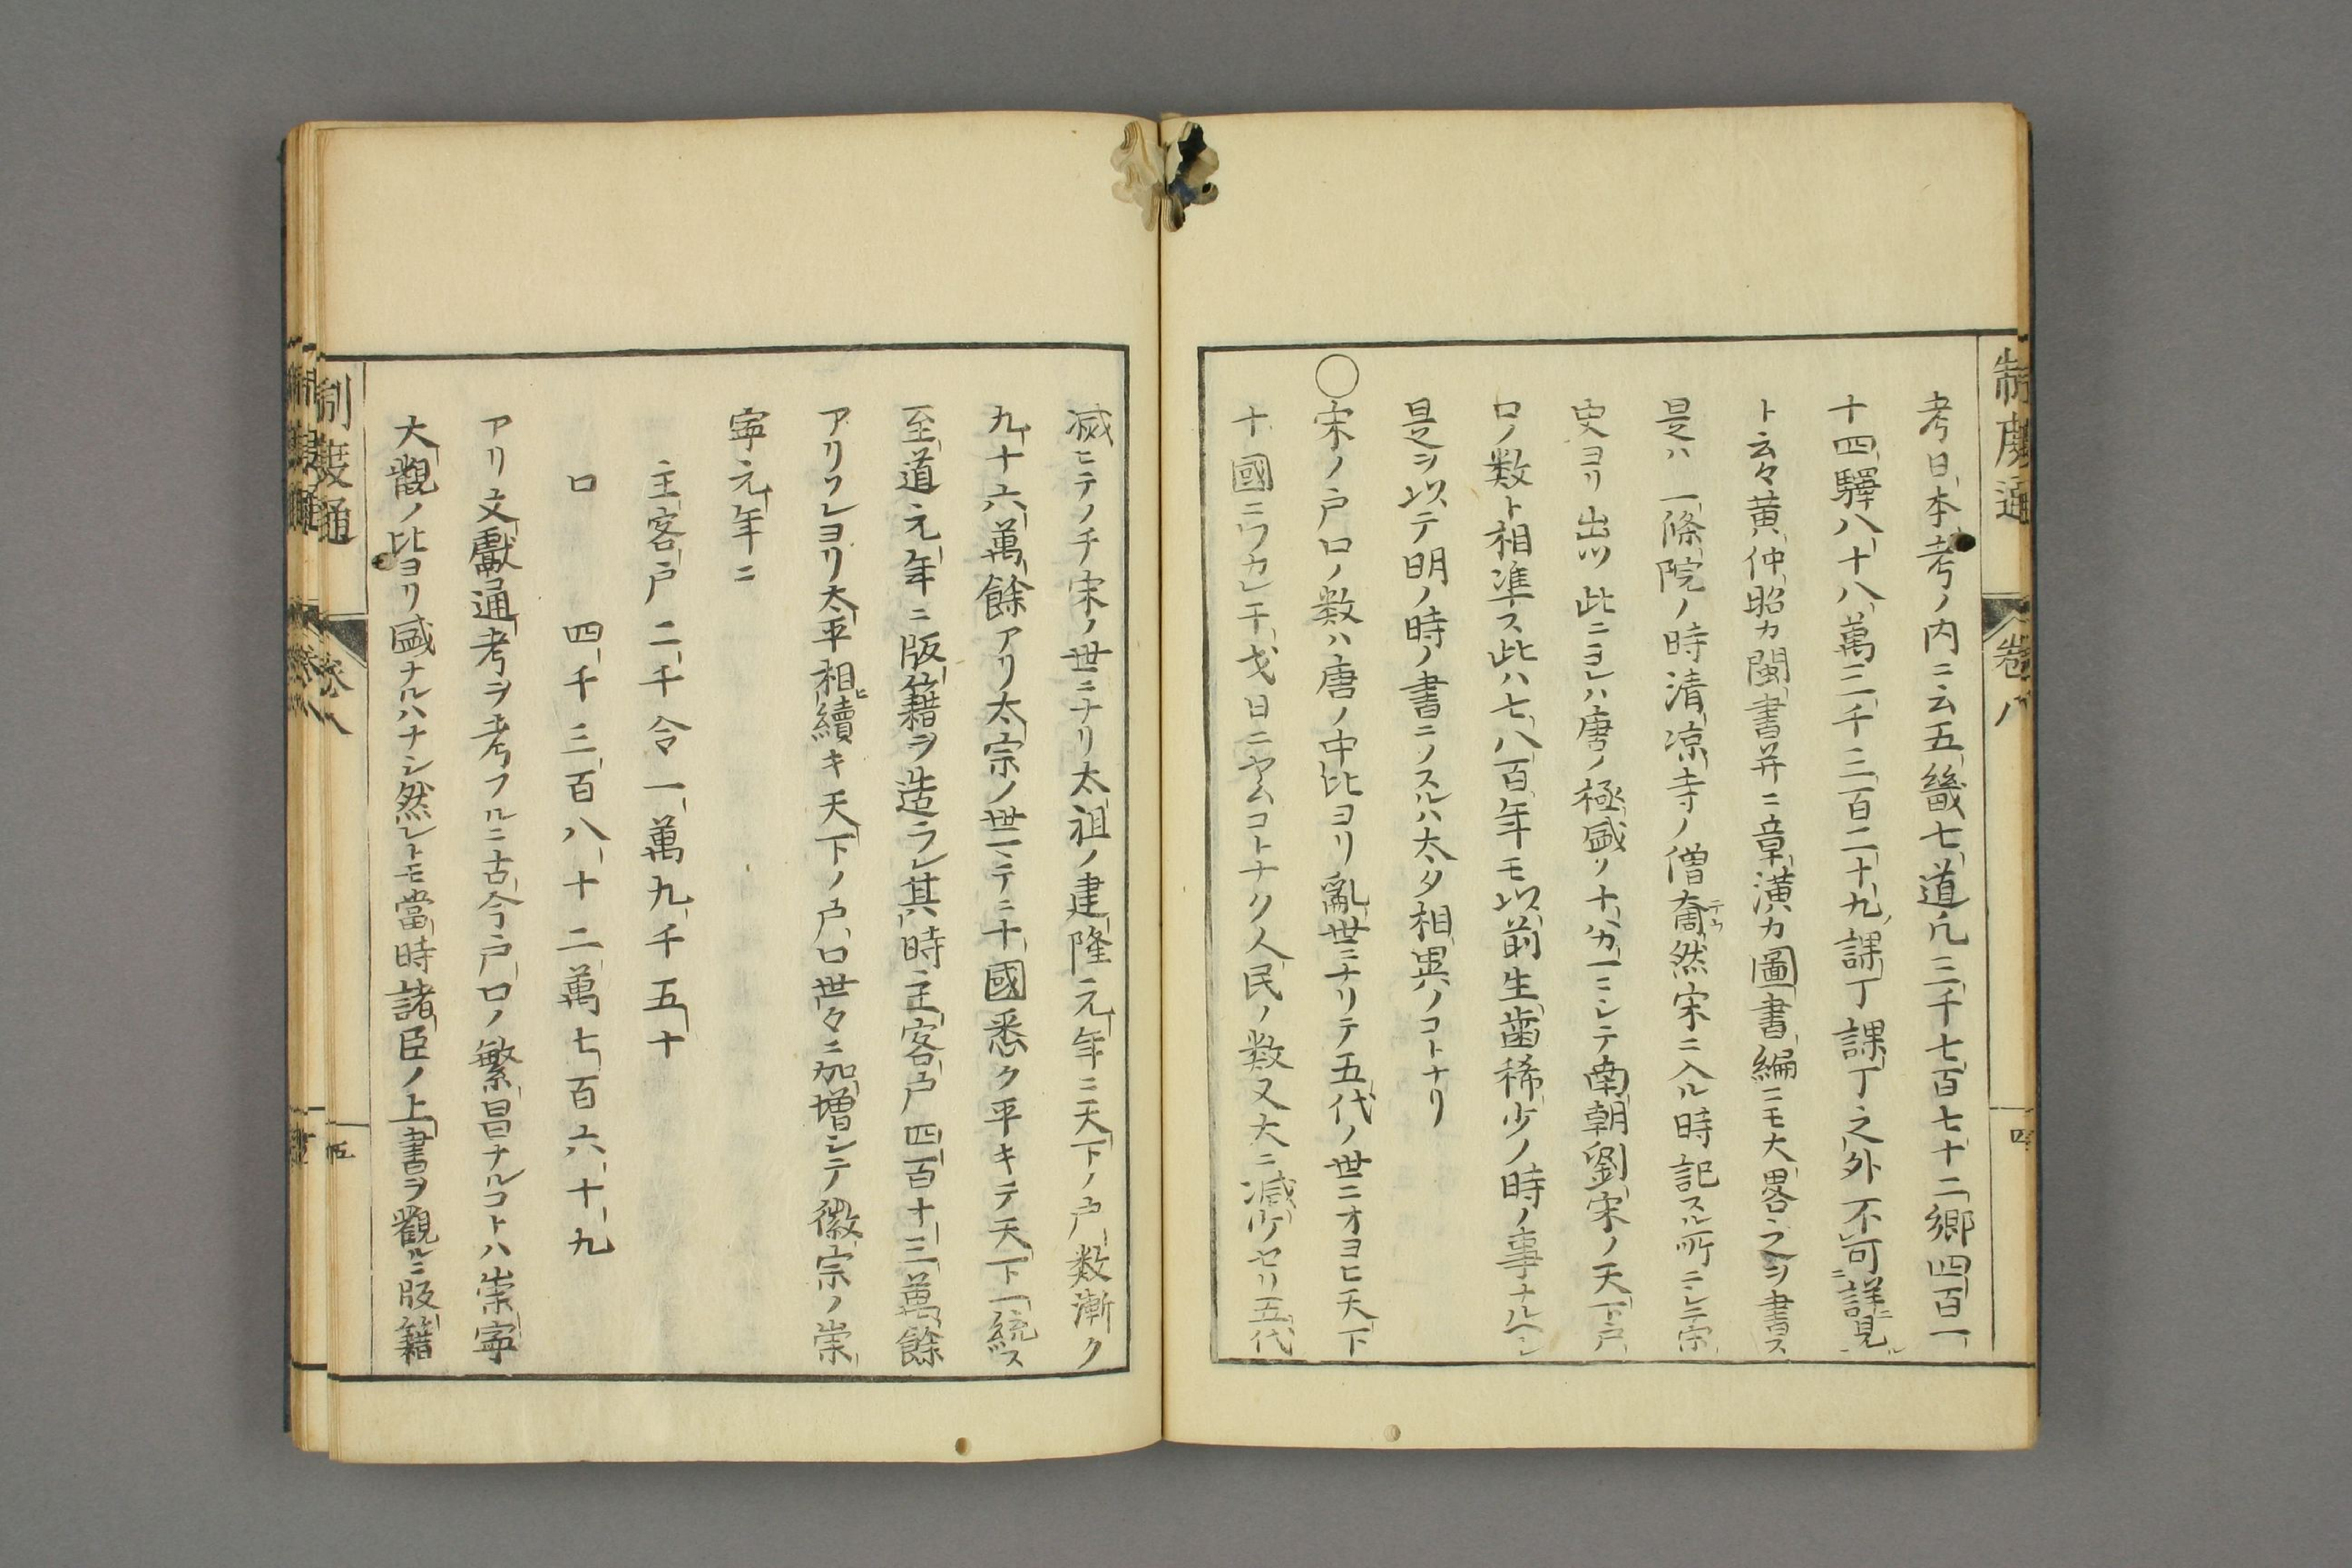 制度通
卷八
四
考日本考ノ内ニ云五畿七道凡三千七百七十二郷四百一
十四驛八十八萬三千三百二十九課丁課丁之外不可詳見
ト云々黄仲昭カ閩書并ニ章潢カ圖書編ニモ大畧之ヲ書ス
是ハ一條院ノ時清凉寺ノ僧奝然宋ニ入ル時記スル所ニシテ宗
史ヨリ出ツ此ニヨレハ唐ノ極盛ソ十カ一ニシテ南朝劉宋ノ天下戸
口ノ数ト相準ス此ハ七八百年モ以前生齒稀少ノ時ノ事ナルヘシ
是ヲ以テ明ノ時ノ書ニノスルハ太タ相異ノコトナリ
〇宋ノ戸口ノ数ハ唐ノ中比ヨリ亂世ニナリテ五代ノ世ニオヨヒ天下
十國ニワカレ干戈日ニヤムコトナク人民ノ数又大ニ減少セリ五代
滅ヒテノチ宋ノ世ニナリ太祖ノ建隆元年ニ天下ノ戸数漸ク
九十六萬餘アリ太宗ノ世マテニ十國悉ク平キテ天下一統ス
至道元年ニ版籍ヲ造ラレ其時主客戸四百十三萬餘
アリソレヨリ太平相續キ天下ノ戸口世々ニ加增シテ徽宗ノ崇
寧元年ニ
主客戸二千令一萬九千五十
口　四千三百八十二萬七百六十九
アリ文獻通考ヲ考フルニ古今戸口ノ繁昌ナルコトハ崇寧
大觀ノ比ヨリ盛ナルハナシ然レトモ當時諸臣ノ上書ヲ觀ルニ版籍
制度通
卷八
五